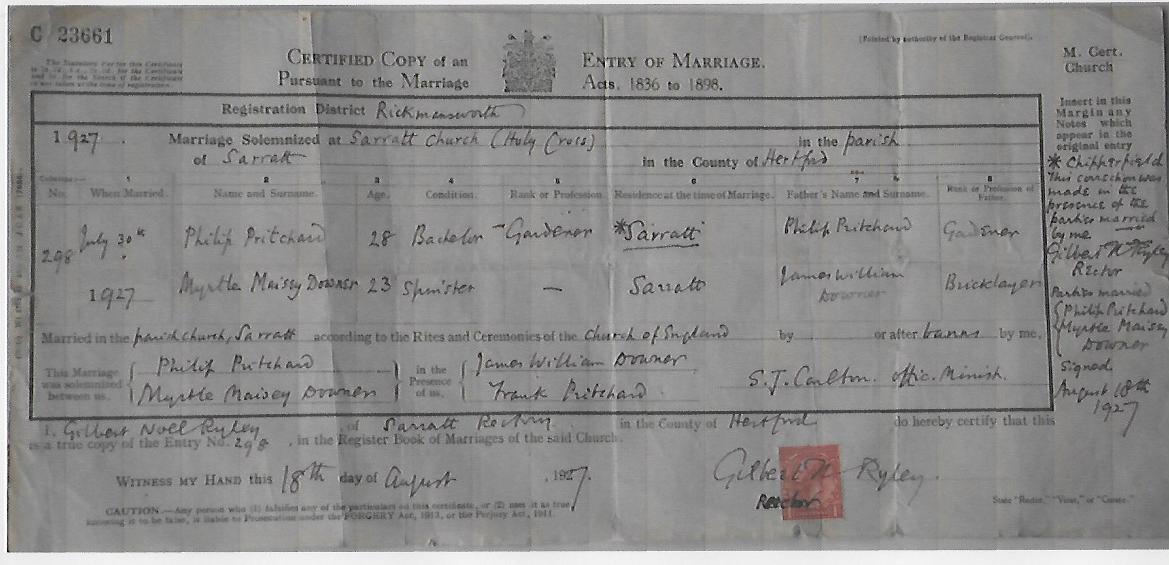 C 23661
(Printed by authority of the Registrar General.)
M. Cert.
Church
CERTIFIED COPY of an ENTRY OF MARRIAGE.
Pursuant to the Marriage Acts, 1836 to 1898.
The Statutory Fee for this Certificate
Registration District Rickmansworth
1927. Marriage Solemnized at Sarratt Church (Holy Cross) in the parish
of Sarratt in the County of Hertford
Columns:— 1 2 3 4 5 6 7 8
No. When Married. Name and Surname. Age. Condition. Rank or Profession. Residence at the time of Marriage. Father's Name and Surname. Rank or Profession of Father.
298 July 30th Philip Pritchard 28 Bachelor Gardener *Sarratt Philip Pritchard Gardener
1927 Myrtle Maisey Downer 23 Spinster — Sarratt James William Downer Bricklayer
Married in the parish church, Sarratt according to the Rites and Ceremonies of the Church of England by or after banns by me,
This Marriage was solemnized between us, Philip Pritchard
Myrtle Maisey Downer
in the Presence of us, James William Downer
Frank Pritchard
S.J. Carlton. offic. Minist.
Insert in this
Margin any
Notes which
appear in the
original entry
* Chipperfield
This correction was
made in the
presence of the
parties married
by me
Gilbert N Ryley
Rector
Parties married
Philip Pritchard
Myrtle Maisey
Downer
Signed
August 18th
1927
I, Gilbert Noel Ryley, of Sarratt Rectory in the County of Hertford do hereby certify that this
is a true copy of the Entry No. 298, in the Register Book of Marriages of the said Church.
WITNESS MY HAND this 18th day of August, 1927.
Gilbert N Ryley.
Rector
State "Rector," "Vicar," or "Curate."
CAUTION.—Any person who (1) falsifies any of the particulars on this certificate, or (2) uses it as true
knowing it to be false, is liable to Prosecution under the FORGERY Act, 1913, or the Perjury Act, 1911.